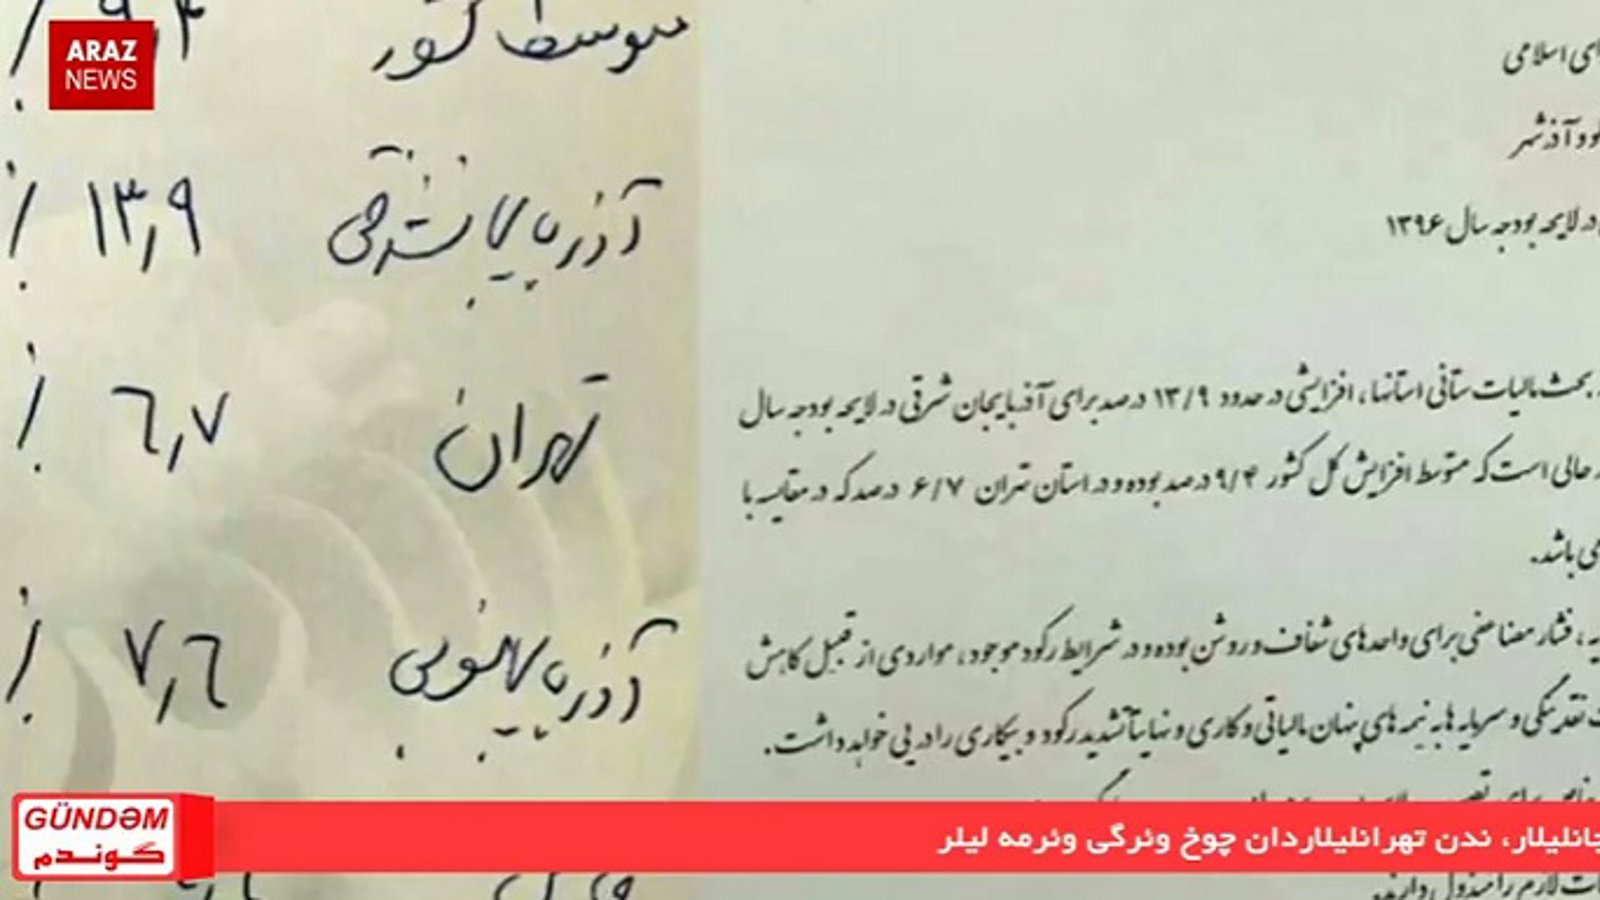 ARAZ
NEWS
متوسط کشور ۹٫۴ ٪
آذربایجانشرقی ۱۳٫۹ ٪
تهران ٦٫٧ ٪
آذربایجانغربی ٧٫٦ ٪
ای اسلامی
و آذرشهر
در لایحه بودجه سال ۱۳۹۶
بحث مالیات ستانی استانها، افزایشی در حدود ۱۳/۹ درصد برای آذربایجان شرقی در لایحه بودجه سال
حالی است که متوسط افزایش کل کشور ۹/۴ درصد بوده و در استان تهران ۶/۷ درصد که در مقایسه با
می باشد.
فشار مضاعفی برای واحدهای شفاف و روشن بوده و در شرایط رکود موجود، مواردی از قبیل کاهش
نقدینگی و سرمایه ها به نیمه های پنهان مالیاتی و کاری و نهایتاً تشدید رکود و بیکاری را در پی خواهد داشت.
GÜNDƏM
گوندم
جانلیلار، ندن تهرانلیلاردان چوخ وئرگی وئرمه لیلر
لازم را مبذول دارند.